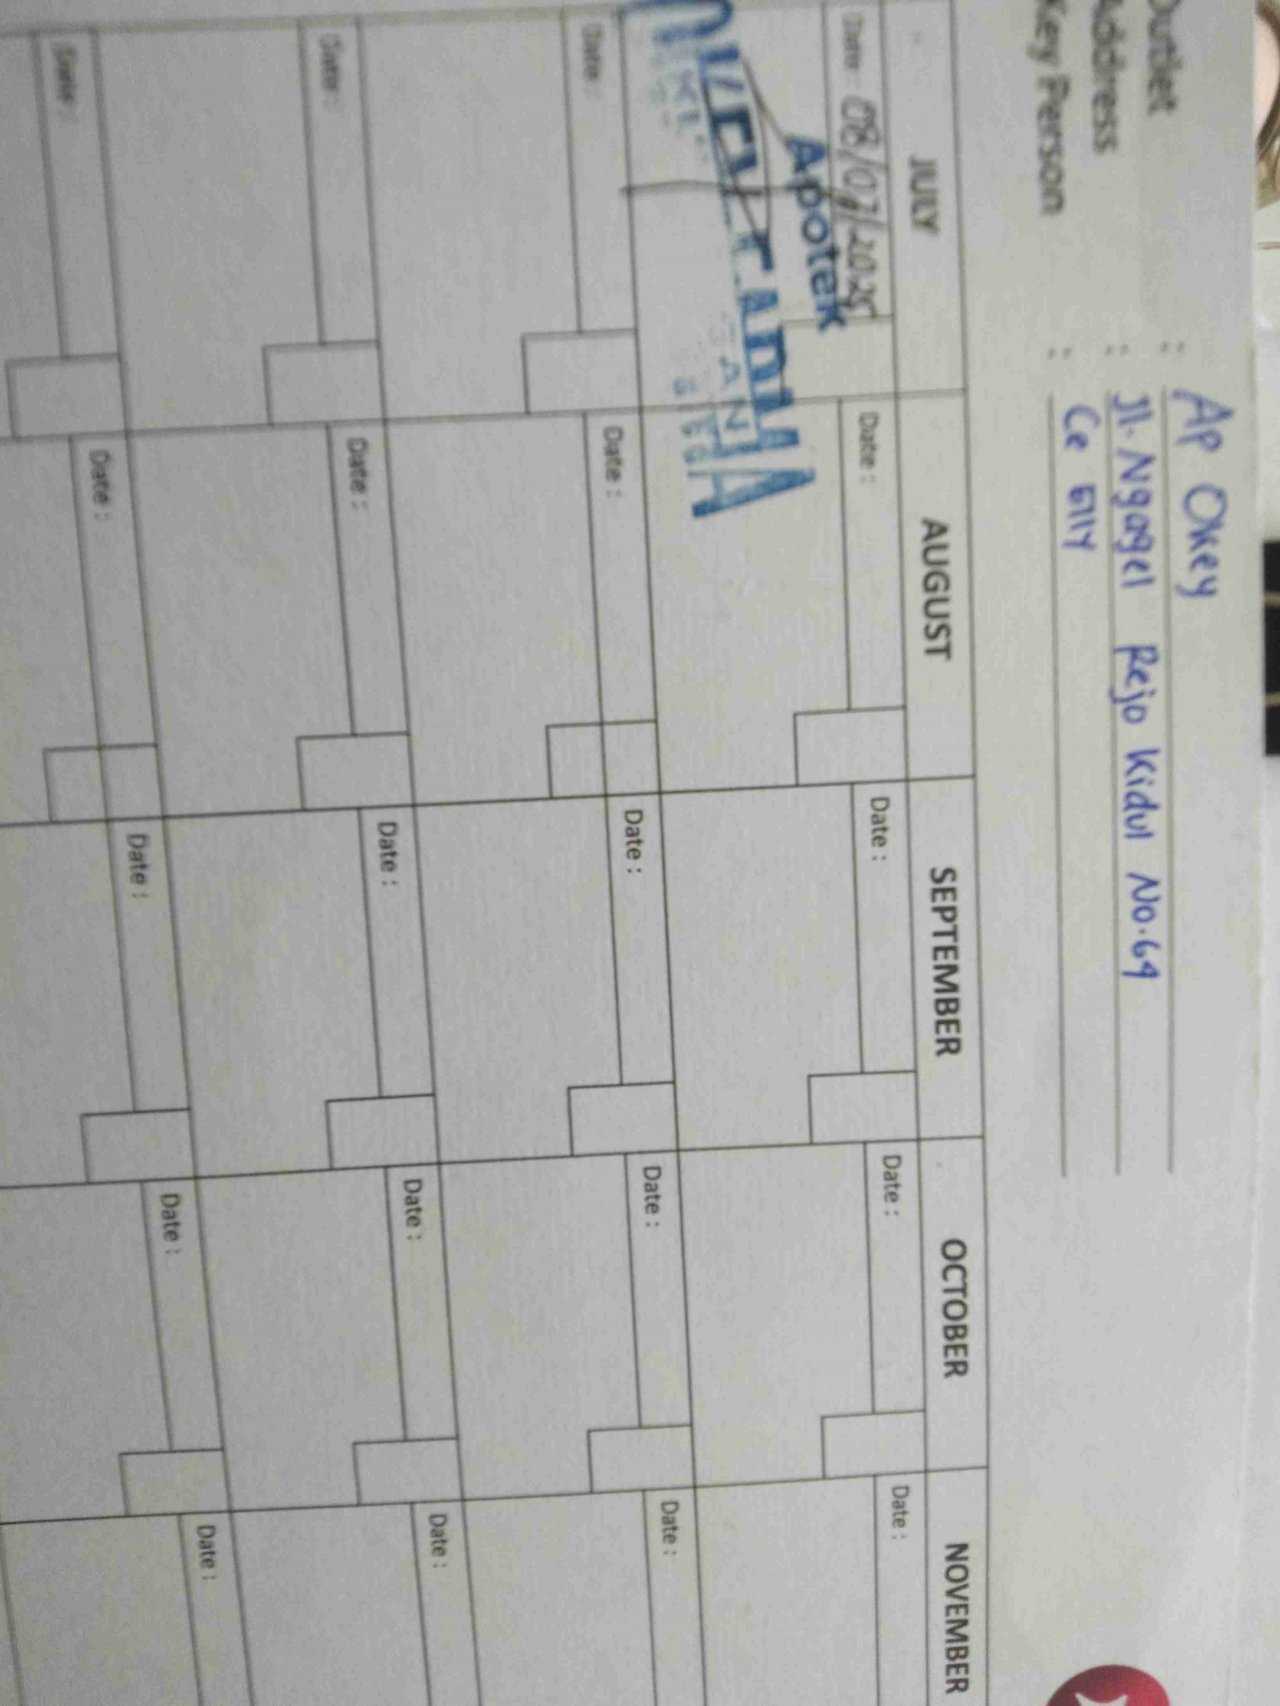 Outlet : AP Okey
Address : Jl. Ngagel Rejo Kidul No.64
Key Person : Ce Elly
JULY AUGUST SEPTEMBER OCTOBER NOVEMBER
Date : 08/07/2025 Date : Date : Date : Date :
Apotek
Date : Date : Date : Date : Date :
Date : Date : Date : Date : Date :
Date : Date : Date : Date : Date :